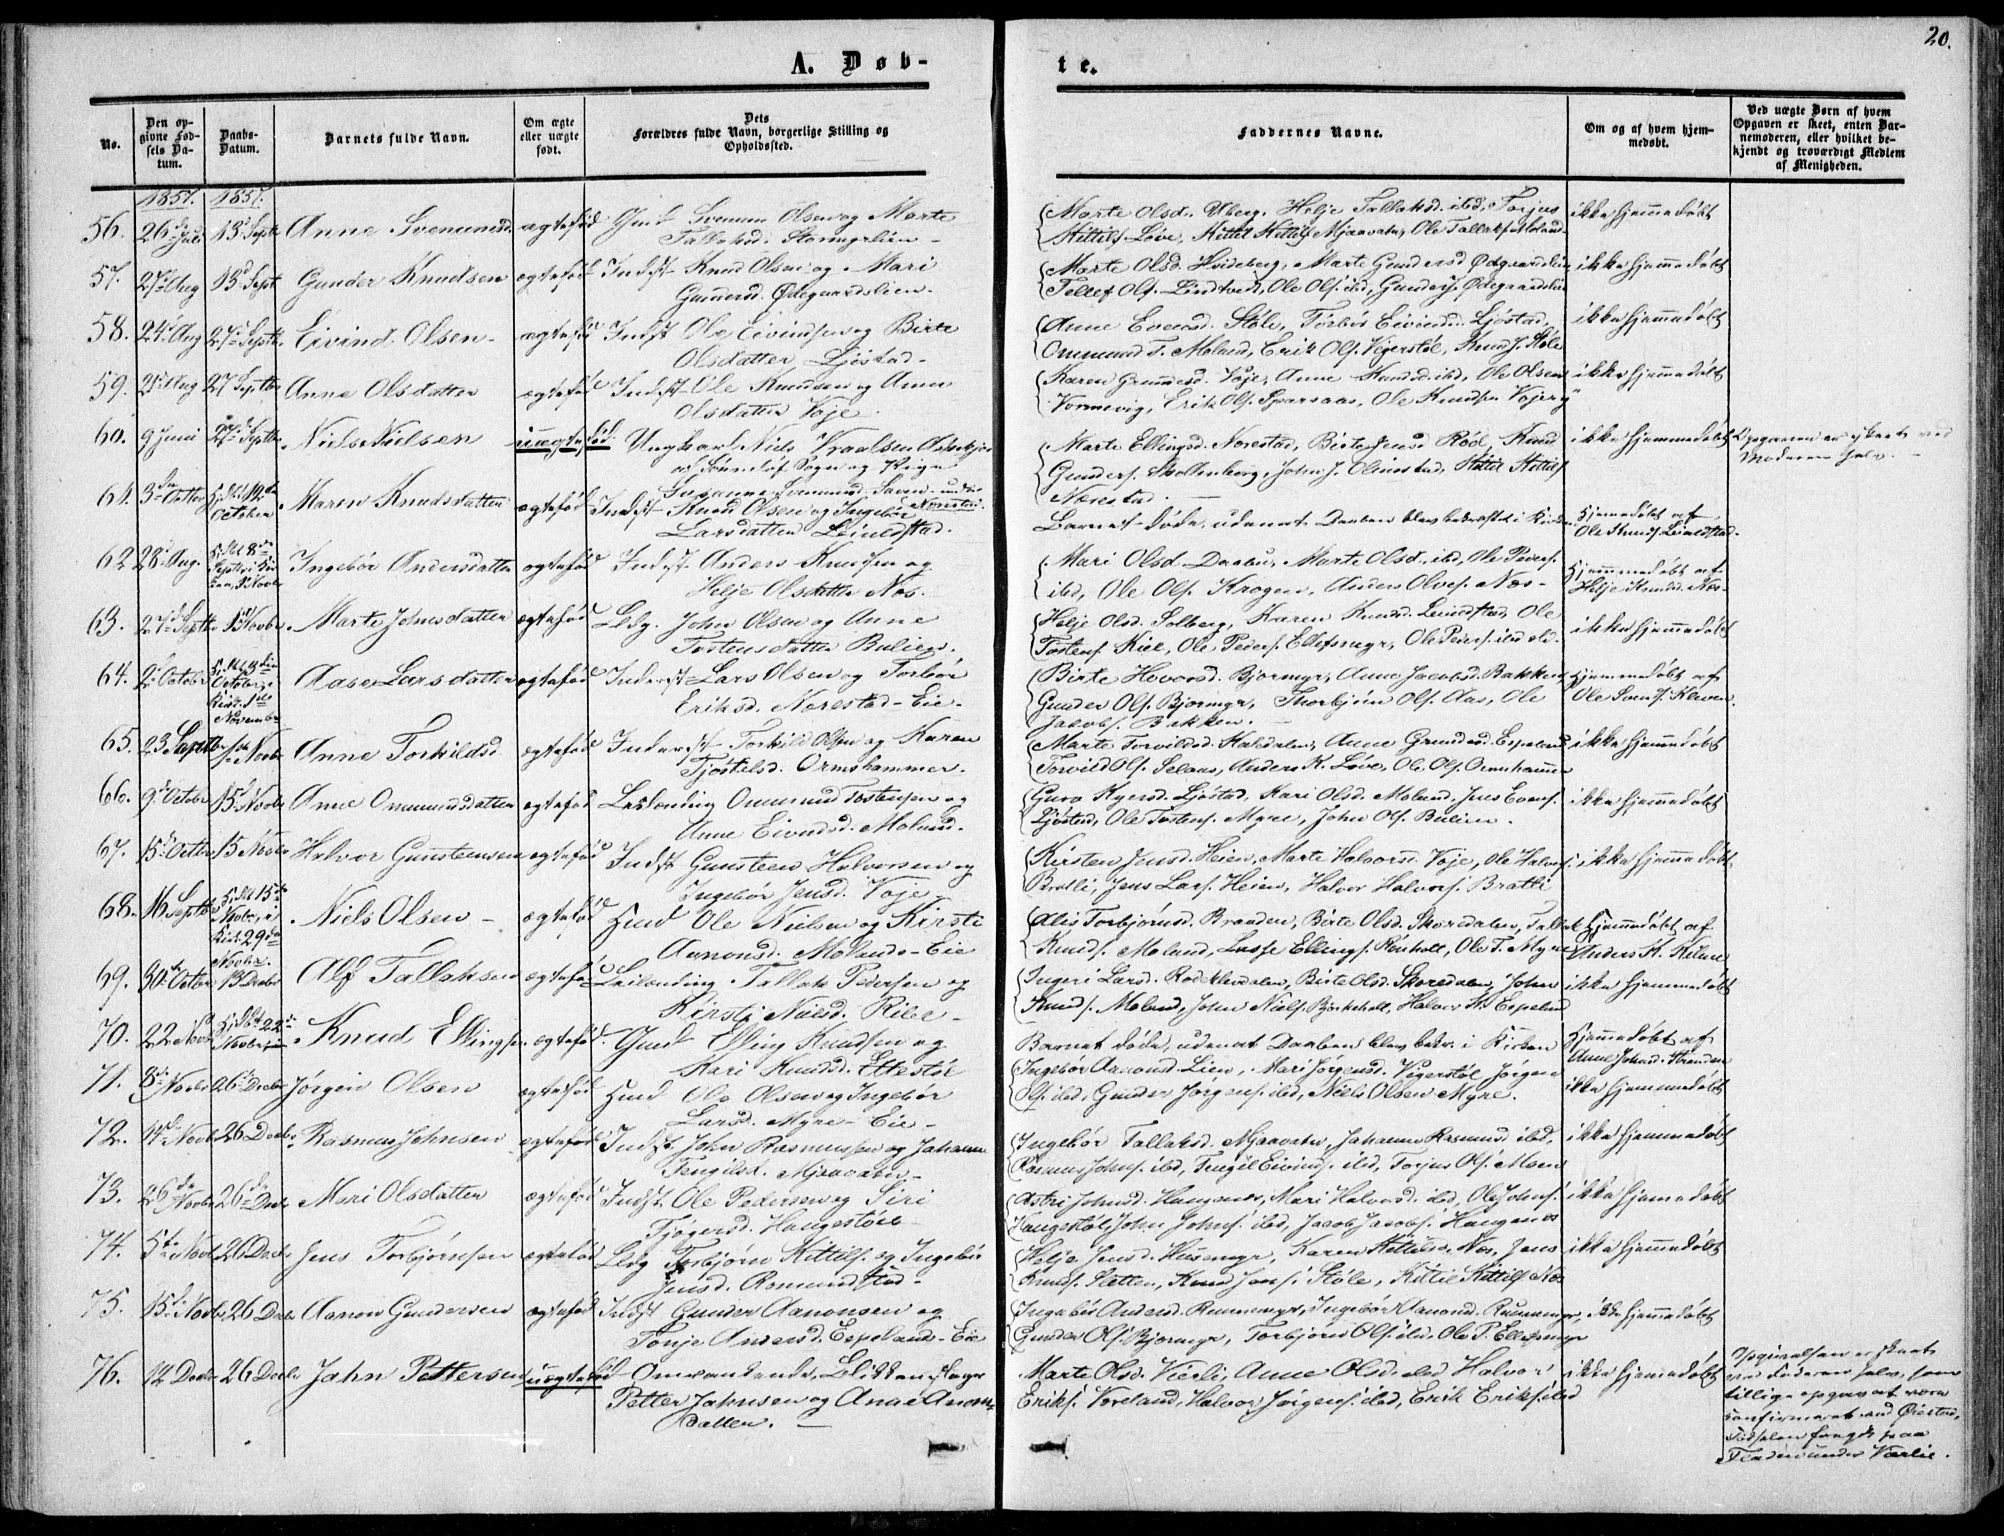 20.
A. Døb-
te.
No.
Den op-
givne Fød-
sels Da-
tum.
Daabs-
Datum.
Barnets fulde Navn.
Om ægte
eller uægte
født.
Dets
Forældres fulde Navn, borgerlige Stilling og
Opholdssted.
Faddernes Navne.
Om og af hvem hjem-
medøbt.
Ved uægte Børn af hvem
Opgaven er skeet, enten Bar-
nemoderen, eller hvilket be-
kjendt og troværdigt Medlem
af Menigheden.
1857. 1857.
56. 26 Juli 13 Septb Anne Svenumsd. ægtefød Gmd Svenum Olsen og Marte
Tallaksd. Stormyrlien
Marte Olsd. Uberg, Helje Tallaksd. ibd, Torjus
Kittils. Løve, Kittil Kittils. Mjaavatn, Ole Tallaks. Moland
ikke hjemmedøbt
57. 27 Aug 13 Sept Gunder Knudsen ægtefød Indst Knud Olsen og Mari
Gundersd. Ødegaardslien.
Marte Olsd. Hvideberg, Marte Gundersd Ødegaardslien
Tellef Ols. Lindtveit, Ole Ols. ibd, Gunder J. Ødegaardslien
ikke hjemmedøbt
58. 24 Aug 27 Septb. Eivind Olsen ægtefød Indst Ole Eivindsen og Birte
Olsdatter Ljøstad
Anne Evensd. Støle, Torbør Eivindsd. Ljøstad,
Ommund T. Moland, Erik Ols. Vegerstøl, Knud J. Støle
ikke hjemmedøbt
59. 21 Aug 27 Septbr Anne Olsdatter ægtefød Indst Ole Knudsen og Anne
Olsdatter Voje.
Karen Gunnersd. Voje, Anne ibd, Ole Olsen
Vormevig, Erik Ols. Sparsaas, Ole Knuds. Voje
ikke hjemmedøbt
60. 9 Juni 27 Septbr Niels Nielsen uægtefød. Ungkarl Niels Vraalsen
af Sønneløf Sogn og Pige
Susanne Svenumsd. Saven under
Nærestad.
Marte Ellingsd. Nærestad, Birte Jensd. Rød, Knud
Gunders. Skottenborg, John J. Olmestad, Kittil Kittils.
Nærestad.
ikke hjemmedøbt Opgaven er skeet ved
Moderen selv.
61. 3 Octbr Maren Knudsdatter ægtefød Indst Knud Olsen og Ingebør
Larsdatter Leivdstad.
October
Barnet døde, udenat Daaben blev bekræftet i Kirken
Hjemmedøbt af
Ole Knuds. Leivdstad.
62 28 Aug. Ingebør Andersdatter ægtefød Indst Anders Knudsen og
Helje Olsdatter Næs.
Mari Olsd. Daabu, Marte Olsd. ibd, Ole Peders.
ibd, Ole Ols. Krogen, Anders Olves. Næs
Hjemmedøbt af
Helje Knudsd. Næs
63. 27 Septbr 1 Novbr Marte Johnsdatter ægtefød Ldg. John Olsen og Anne
Tostensdatter Bulien.
Helje Olsd. Solberg, Karen Knudsd. Leivdstad, Ole
Tostens. Kile, Ole Peders. Ellefsmyr, Ole Peders. ibd
ikke hjemmedøbt
64. 2 October Aase Larsdatter ægtefød Inderst Lars Olsen og Torbør
Eriksd. Nærestad-Eie.
October, i
Kirk.
November
Birte Hovorsd. Bjormyr, Anne Jacobsd. Bakken,
Gunder Ols. Bjormyr, Thorbjørn Ols. Aas, Ole
Jacobs. Bakken.
Hjemmedøbt af
Ole Svens. Kleven.
65. 23 Septbr Novbr Anne Torkildsd. ægtefød Inderst Torkild Olsen og Karen
Tjostelsd. Ormshammer.
Marte Torvildsd. Hakedalen, Anne Gundersd. Espeland
Torvild Ols. Selaas, Anders K. Løve, Ole Ols. Ormshammer
ikke hjemmedøbt
66. 9 Octobr 15 Novbr Anne Ommundsdatter ægtefød Leilending Ommund Tostensen og
Anne Eivindsd. Moland.
Guro Ljøstad, Kari Olsd. Moland, Jens Evens.
Ljøstad, Ole Tostens. Myre, John Ols. Bulien.
ikke hjemmedøbt
67. 15 Octbr 15 Novbr Halvor Gunsteensen ægtefød Indst Gunsteen Halvorsen og
Ingebør Jensd. Voje.
Kirsten Jensd. Heien, Marte Halvorsd. Voje, Ole Halvors.
Bratli, Jens Lars. Heien, Halvor Halvors. Bratli
ikke hjemmedøbt
68. 16 Septbr Niels Olsen ægtefød Hmd Ole Nielsen og Kirsti
Aanonsd. Molands-Eie
Novbr. i
Kirk. 29
Novbr.
Alis Torbjørnsd. Braaden, Birte Olsd. Skoredalen, Tallak
Knuds. Moland, Lasse Ellings. Rønholt, Ole T. Myre
Hjemmedøbt af
Anders
69. 30 Octbr 13 Decbr Alf Tallaksen ægtefød Leilending Tallak Pedersen og
Kirsti Nielsd. Rile
Ingeri Larsd. Rodeklevdalen, Birte Olsd. Skoredalen, John
Knuds. Moland, John Niels. Bjørkholt, Halvor N. Espeland
ikke hjemmedøbt
70. 22 Novbr Novbr Knud Ellingsen ægtefød Gmd Elling Knudsen og
Kari Knudsd. Ettestøl
Barnet døde, udenat Daaben blev bekr. i Kirken
Hjemmedøbt af
Anne Johnsd. Stranden
71. 8 Novbr 26 Decbr Jørgen Olsen ægtefød Hmd Ole Olsen og Ingebør
Larsd. Myre-Eie
Ingebør Aanonsd. Lien, Mari Jørgensd. Vegerstøl, Jørgen
Ols. ibd, Gunder Jørgens. ibd, Niels Olsen Myre.
ikke hjemmedøbt
72. 14 Novb 26 Decbr Rasmus Johnsen ægtefød Indst John Rasmussen og Johanne
Tengilsd. Mjaavatn
Ingebør Tallaksd. Mjaavatn, Johanne Rasmusd ibd,
Rasmus Johns. ibd, Tengil Eivinds. ibd, Torjus Ols. Moen
ikke hjemmedøbt
73. 26 Novbr 26 Decbr Mari Olsdatter ægtefød Indst Ole Pedersen og Siri
Tjøgersd. Haugestøl
Astri Johnsd. Haugenes, Mari Halvorsd. ibd, Ole Johns.
Haugestøl, John Johns. ibd, Jacob Jacobs. Haugenes
ikke hjemmedøbt
74. 5 Novb 26 Decbr Jens Torbjørnsen ægtefød Ldg Torbjørn Kittils. og Ingebør
Jensd. Romundstad
Helje Jensd. Husemyr, Karen Kittilsd. Næs, Jens
Knuds. Sletten, Knud Jens. Støle, Kittil Kittils. Næs
ikke hjemmedøbt
75. 15 Novbr 26 Decbr Aanon Gundersen ægtefød Indst Gunder Aanonsen og
Tonje Andersd. Espelands-Eie
Ingebør Andersd. Runnemyr, Ingebør Aanonsd. Runnemyr,
Gunder Ols. Bjormyr, Torbjørn Ols. ibd, Ole P. Ellefsmyr
ikke hjemmedøbt
76. 12 Decbr 26 Decbr John Pettersen uægtefød Omvankende Blikkenslager
Petter Johnsen og Ane Aanons-
datter.
Marte Olsd. Vierli, Anne Olsd. ibd Halvor
Eriks. Voreland, Halvor Jørgens. ibd, Erik Eriks. ibd
ikke hjemmedøbt
Opgivelsen er skeet
ved Faderen selv, som
tillige opgav at være
konfirmeret ved Øiestad,
under Værlie.